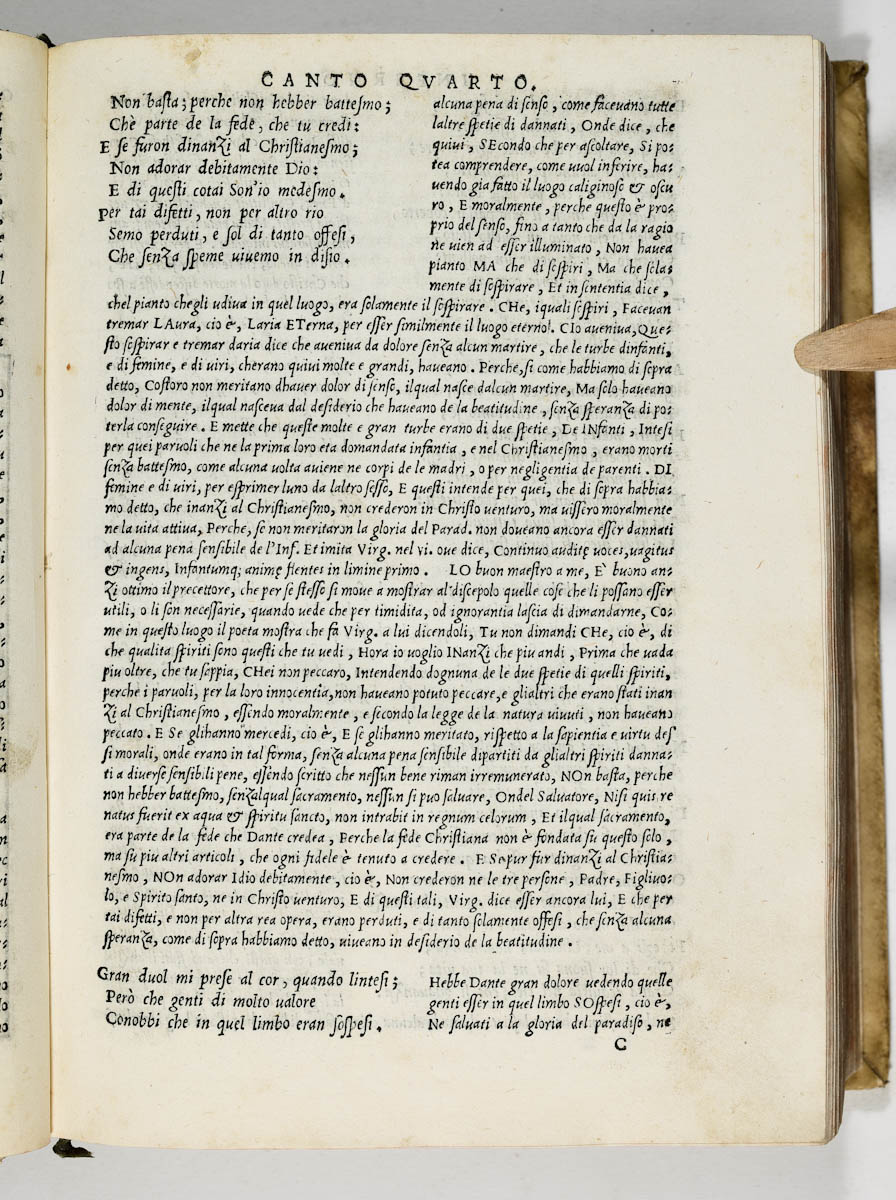 CANTO QVARTO.
Non basta; perche non hebber battesmo;
Chè parte de la fede, che tu credi:
E se furon dinanzi al Christianesmo;
Non adorar debitamente Dio:
E di questi cotai Son'io medesmo.
Per tai difetti, non per altro rio
Semo perduti, e sol di tanto offesi,
Che senza speme uiuemo in disio.
alcuna pena di senso, come faceuano tutte
laltre spetie di dannati, Onde dice, che
quiui, SEcondo che per ascoltare, Si po-
tea comprendere, come uuol inferire, ha-
uendo gia fatto il luogo caliginoso & oscu
ro, E moralmente, perche questo è pro-
prio del senso, fino a tanto che da la ragio
ne uien ad esser illuminato, Non hauea
pianto MA che di sospiri, Ma che sola-
mente di sospirare, Et in sententia dice,
chel pianto chegli udiua in quel luogo, era solamente il sospirare. CHe, iquali sospiri, Faceuan
tremar LAura, cio è, Laria ETerna, per esser similmente il luogo eterno. CIo aueniua, Que-
sto sospirar e tremar daria dice che aueniua da dolore senza alcun martire, che le turbe dinfanti,
e di femine, e di uiri, cherano quiui molte e grandi, haueano. Perche, si come habbiamo di sopra
detto, Costoro non meritano dhauer dolor di senso, ilqual nasce dalcun martire, Ma solo haueano
dolor di mente, ilqual nasceua dal desiderio che haueano de la beatitudine, senza speranza di po-
terla conseguire. E mette che queste molte e gran turbe erano di due spetie, De INfanti, Intesi
per quei paruoli che ne la prima loro eta domandata infantia, e nel Christianesmo, erano morti
senza battesmo, come alcuna uolta auiene ne corpi de le madri, o per negligentia de parenti. DI
femine e di uiri, per esprimer luno da laltro sesso, E questi intende per quei, che di sopra habbia-
mo detto, che inanzi al Christianesmo, non crederon in Christo uenturo, ma uissero moralmente
ne la uita attiua, Perche, se non meritaron la gloria del Parad. non doueano ancora esser dannati
ad alcuna pena sensibile de l'Inf. Et imita Virg. nel vi. oue dice, Continuo auditę uoces, uagitus
& ingens, Infantumq; animę flentes in limine primo. LO buon maestro a me, E' buono an-
zi ottimo il precettore, che per se stesso si moue a mostrar al discepolo quelle cose che li possano esser
utili, o li son necessarie, quando uede che per timidita, od ignorantia lascia di dimandarne, Co-
me in questo luogo il poeta mostra che fa Virg. a lui dicendoli, Tu non dimandi CHe, cio è, di
che qualita spiriti sono questi che tu uedi, Hora io uoglio INanzi che piu andi, Prima che uada
piu oltre, che tu sappia, CHei non peccaro, Intendendo dognuna de le due spetie di quelli spiriti,
perche i paruoli, per la loro innocentia, non haueano potuto peccare, e glialtri che erano stati inan
zi al Christianesmo, essendo moralmente, e secondo la legge de la natura uiuuti, non haueano
peccato. E Se glihanno mercedi, cio è, E se glihanno meritato, rispetto a la sapientia e uirtu des
si morali, onde erano in tal forma, senza alcuna pena sensibile dipartiti da glialtri spiriti danna-
ti a diuerse sensibili pene, essendo scritto che nessun bene riman irremunerato, NOn basta, perche
non hebber battesmo, senzalqual sacramento, nessun si puo saluare, Ondel Saluatore, Nisi quis re
natus fuerit ex aqua & spiritu sancto, non intrabit in regnum celorum, Et ilqual sacramento,
era parte de la fede che Dante credea, Perche la fede Christiana non è fondata su questo solo,
ma su piu altri articoli, che ogni fidele è tenuto a credere. E Se pur fur dinanzi al Christia-
nesmo, NOn adorar Idio debitamente, cio è, Non crederon ne le tre persone, Padre, Figliuo-
lo, e Spirito santo, ne in Christo uenturo, E di questi tali, Virg. dice esser ancora lui, E che per
tai difetti, e non per altra rea opera, erano perduti, e di tanto solamente offesi, che senza alcuna
speranza, come di sopra habbiamo detto, uiueano in desiderio de la beatitudine.
Gran duol mi prese al cor, quando lintesi;
Però che genti di molto ualore
Conobbi che in quel limbo eran sospesi.
Hebbe Dante gran dolore uedendo quelle
genti esser in quel limbo SOspesi, cio è,
Ne saluati a la gloria del paradiso, ne
C